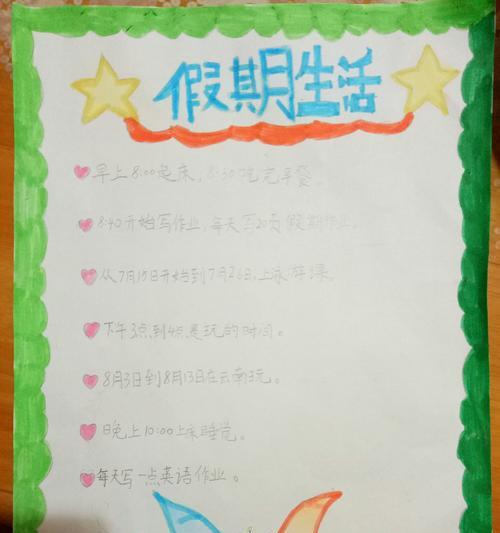 假期生活
早上8:00起床，8:30吃完早餐。
8:40开始写作业，每天写20页假期作业。
从7月15日开始到7月26日，上泳游课。
下午3点到4点是玩的时间。
8月3日到8月13日在云南玩。
晚上10:00上床睡觉。
每天写一点英语作业。